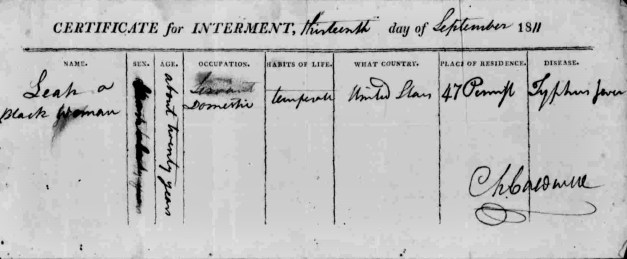 CERTIFICATE for INTERMENT, thirteenth day of September 1811
NAME. SEX. AGE. OCCUPATION. HABITS OF LIFE. WHAT COUNTRY. PLACE OF RESIDENCE. DISEASE.
Leah a
Black Woman
about twenty years
Servant
Domestic
temperate
United States
47 Penn St
Typhus fever
Ch Caldwell